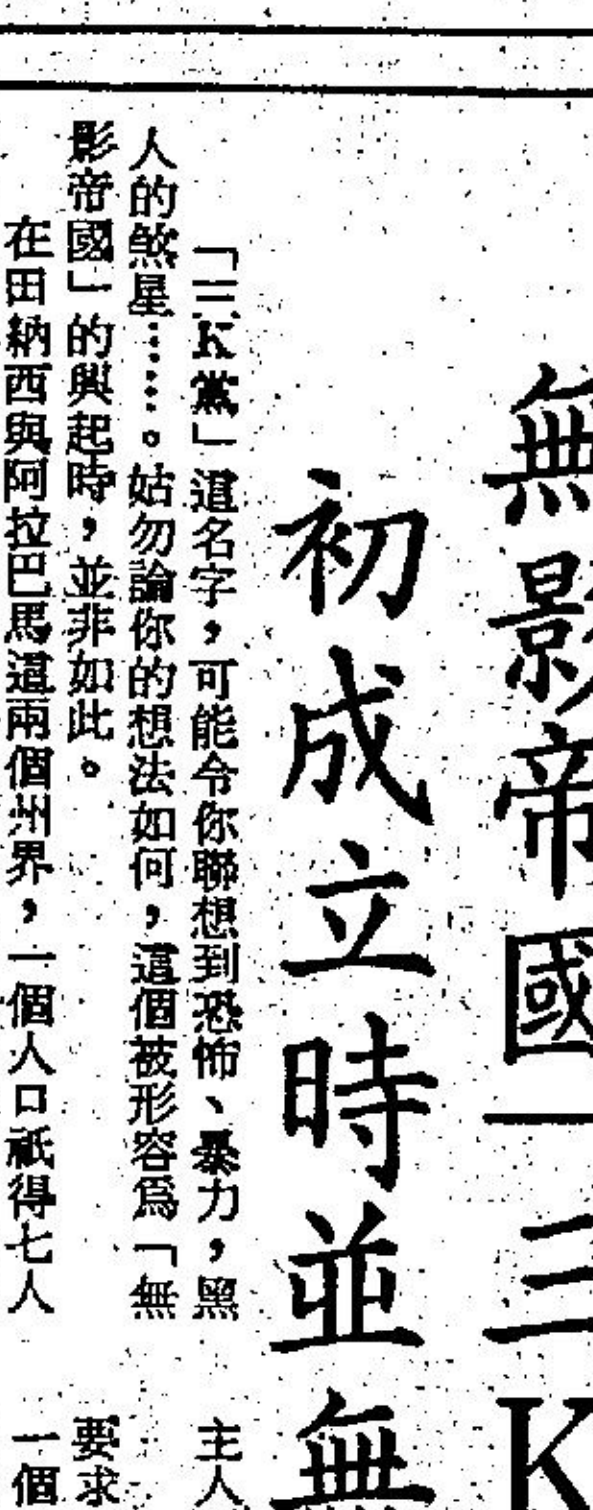 無影帝國—三K
初成立時並無
「三K黨」這名字，可能令你聯想到恐怖、暴力，黑
人的煞星……。姑勿論你的想法如何，這個被形容爲「無
影帝國」的興起時，並非如此。
在田納西與阿拉巴馬這兩個州界，一個人口祇得七人
主人
要求
一個